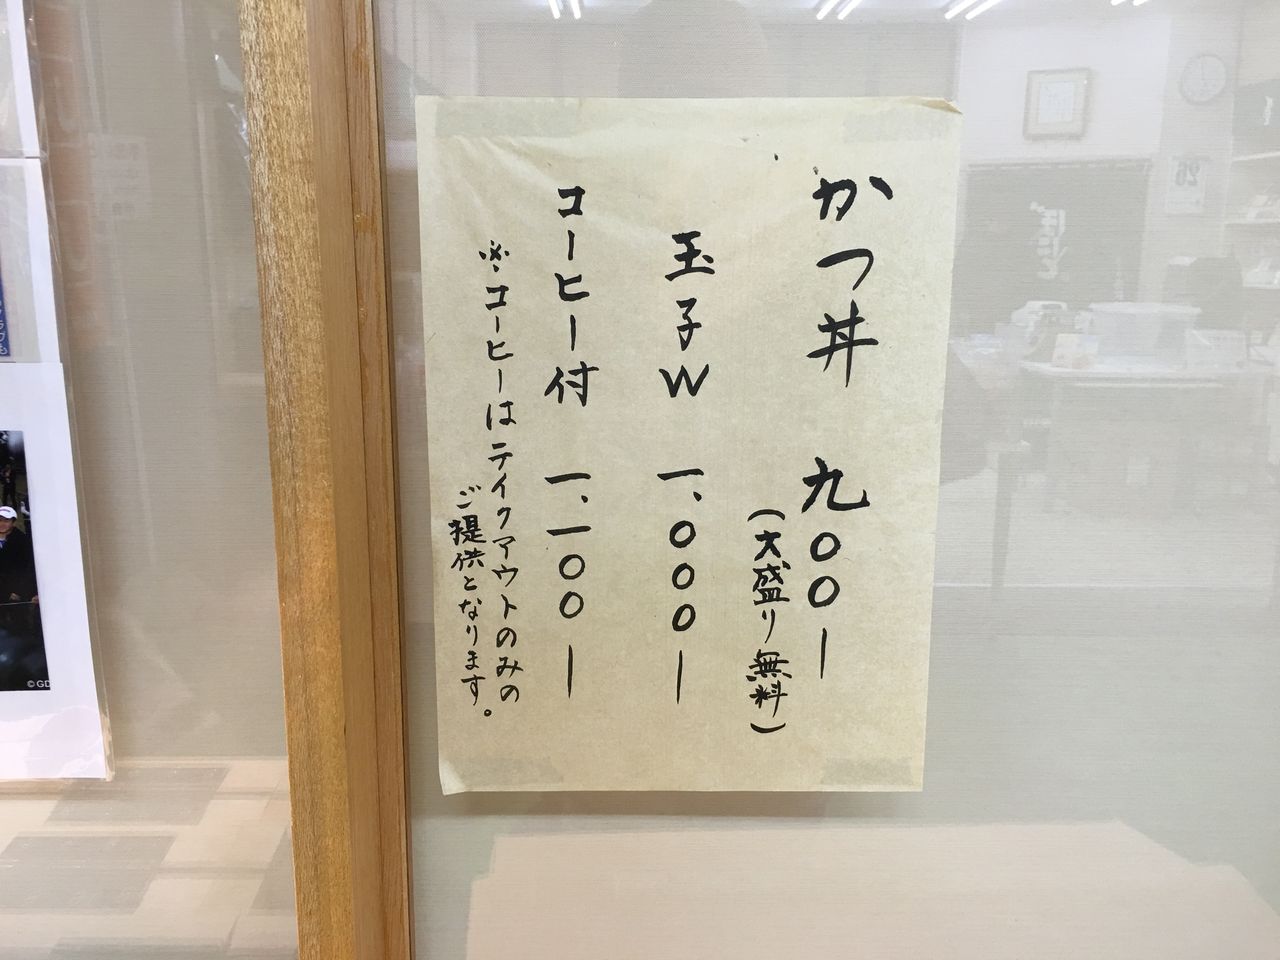 かつ丼 九〇〇ー
(大盛り無料)
玉子W 一、〇〇〇ー
コーヒー付 一、一〇〇ー
※コーヒーはテイクアウトのみの
ご提供となります。
ラブも
©GD
26